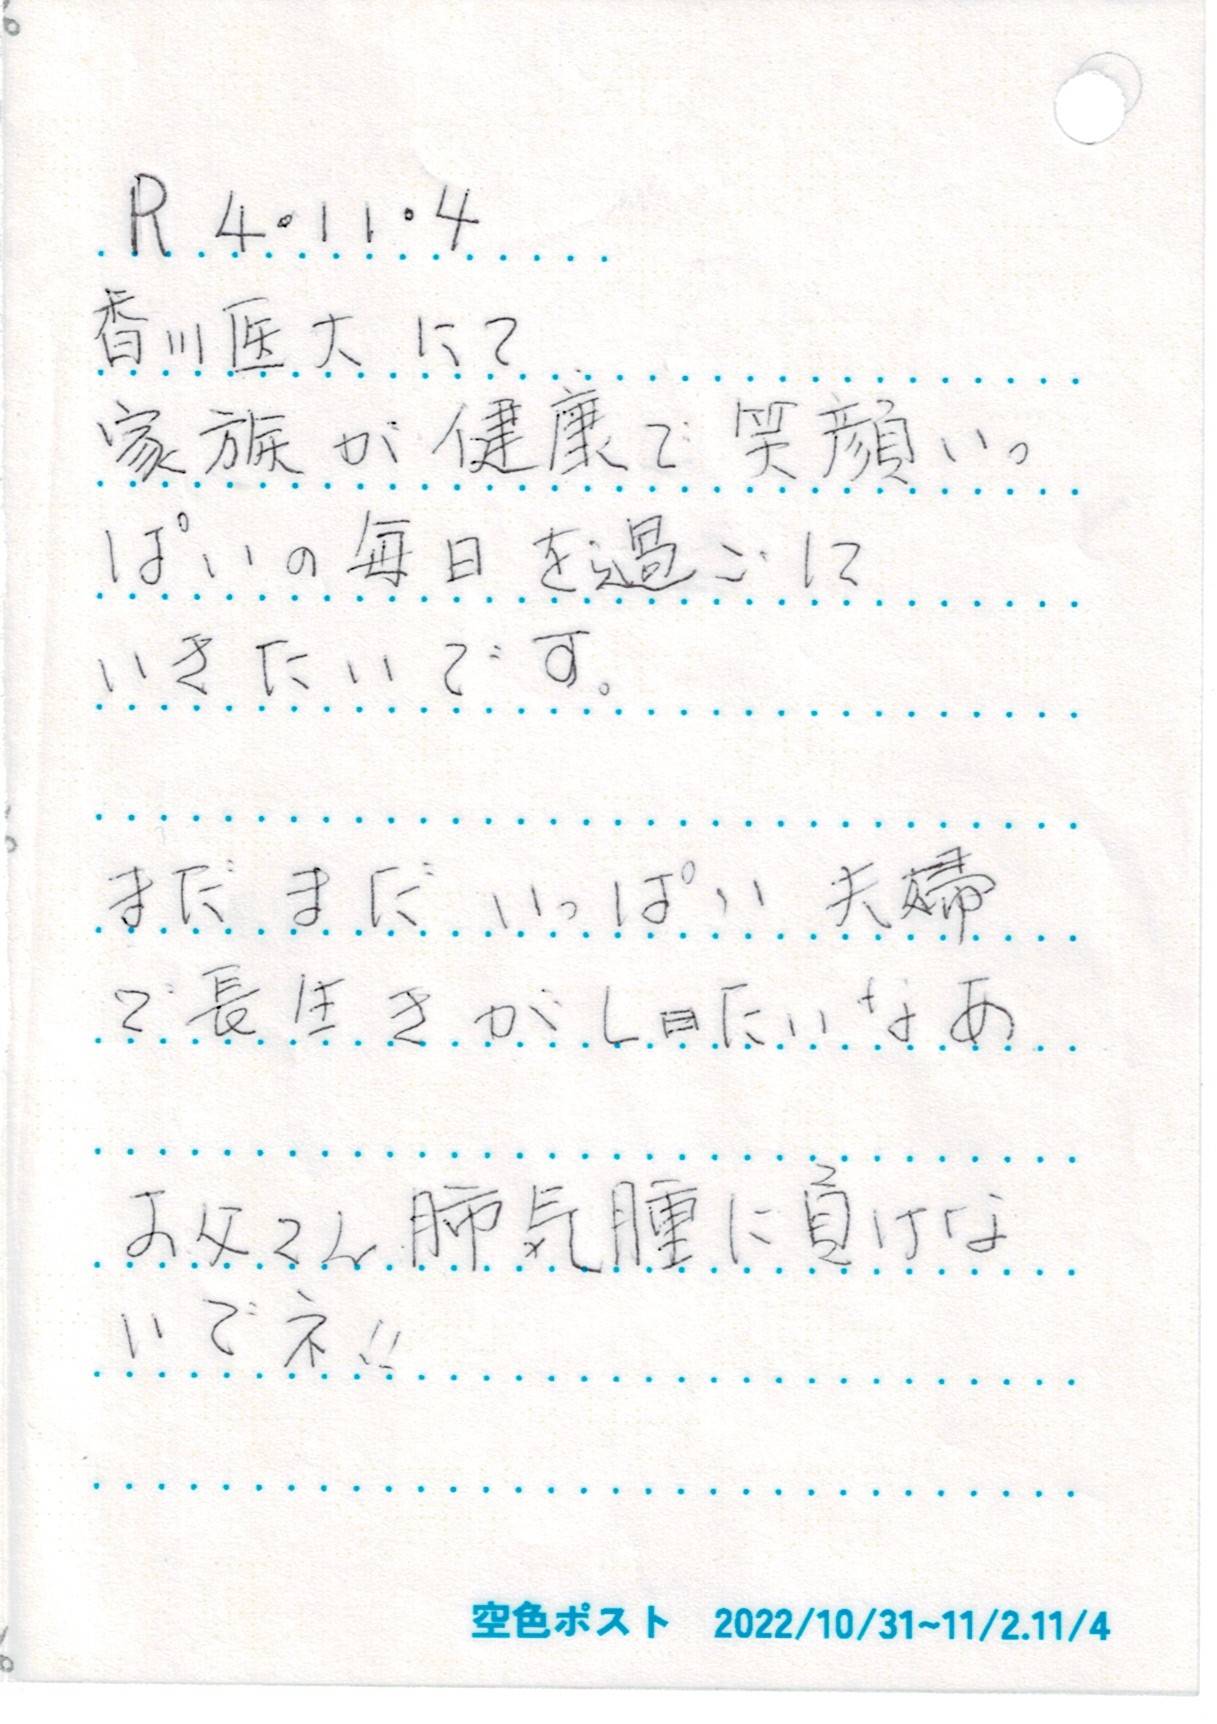 R 4・11・4
香川医大 にて
家族が健康で笑顔いっ
ぱいの毎日を過ごにて
いきたいです。
まだまだいっぱい夫婦
で長生きがしたいなあ
お父さん肺気腫に負けな
いでネ!!
空色ポスト 2022/10/31~11/2.11/4